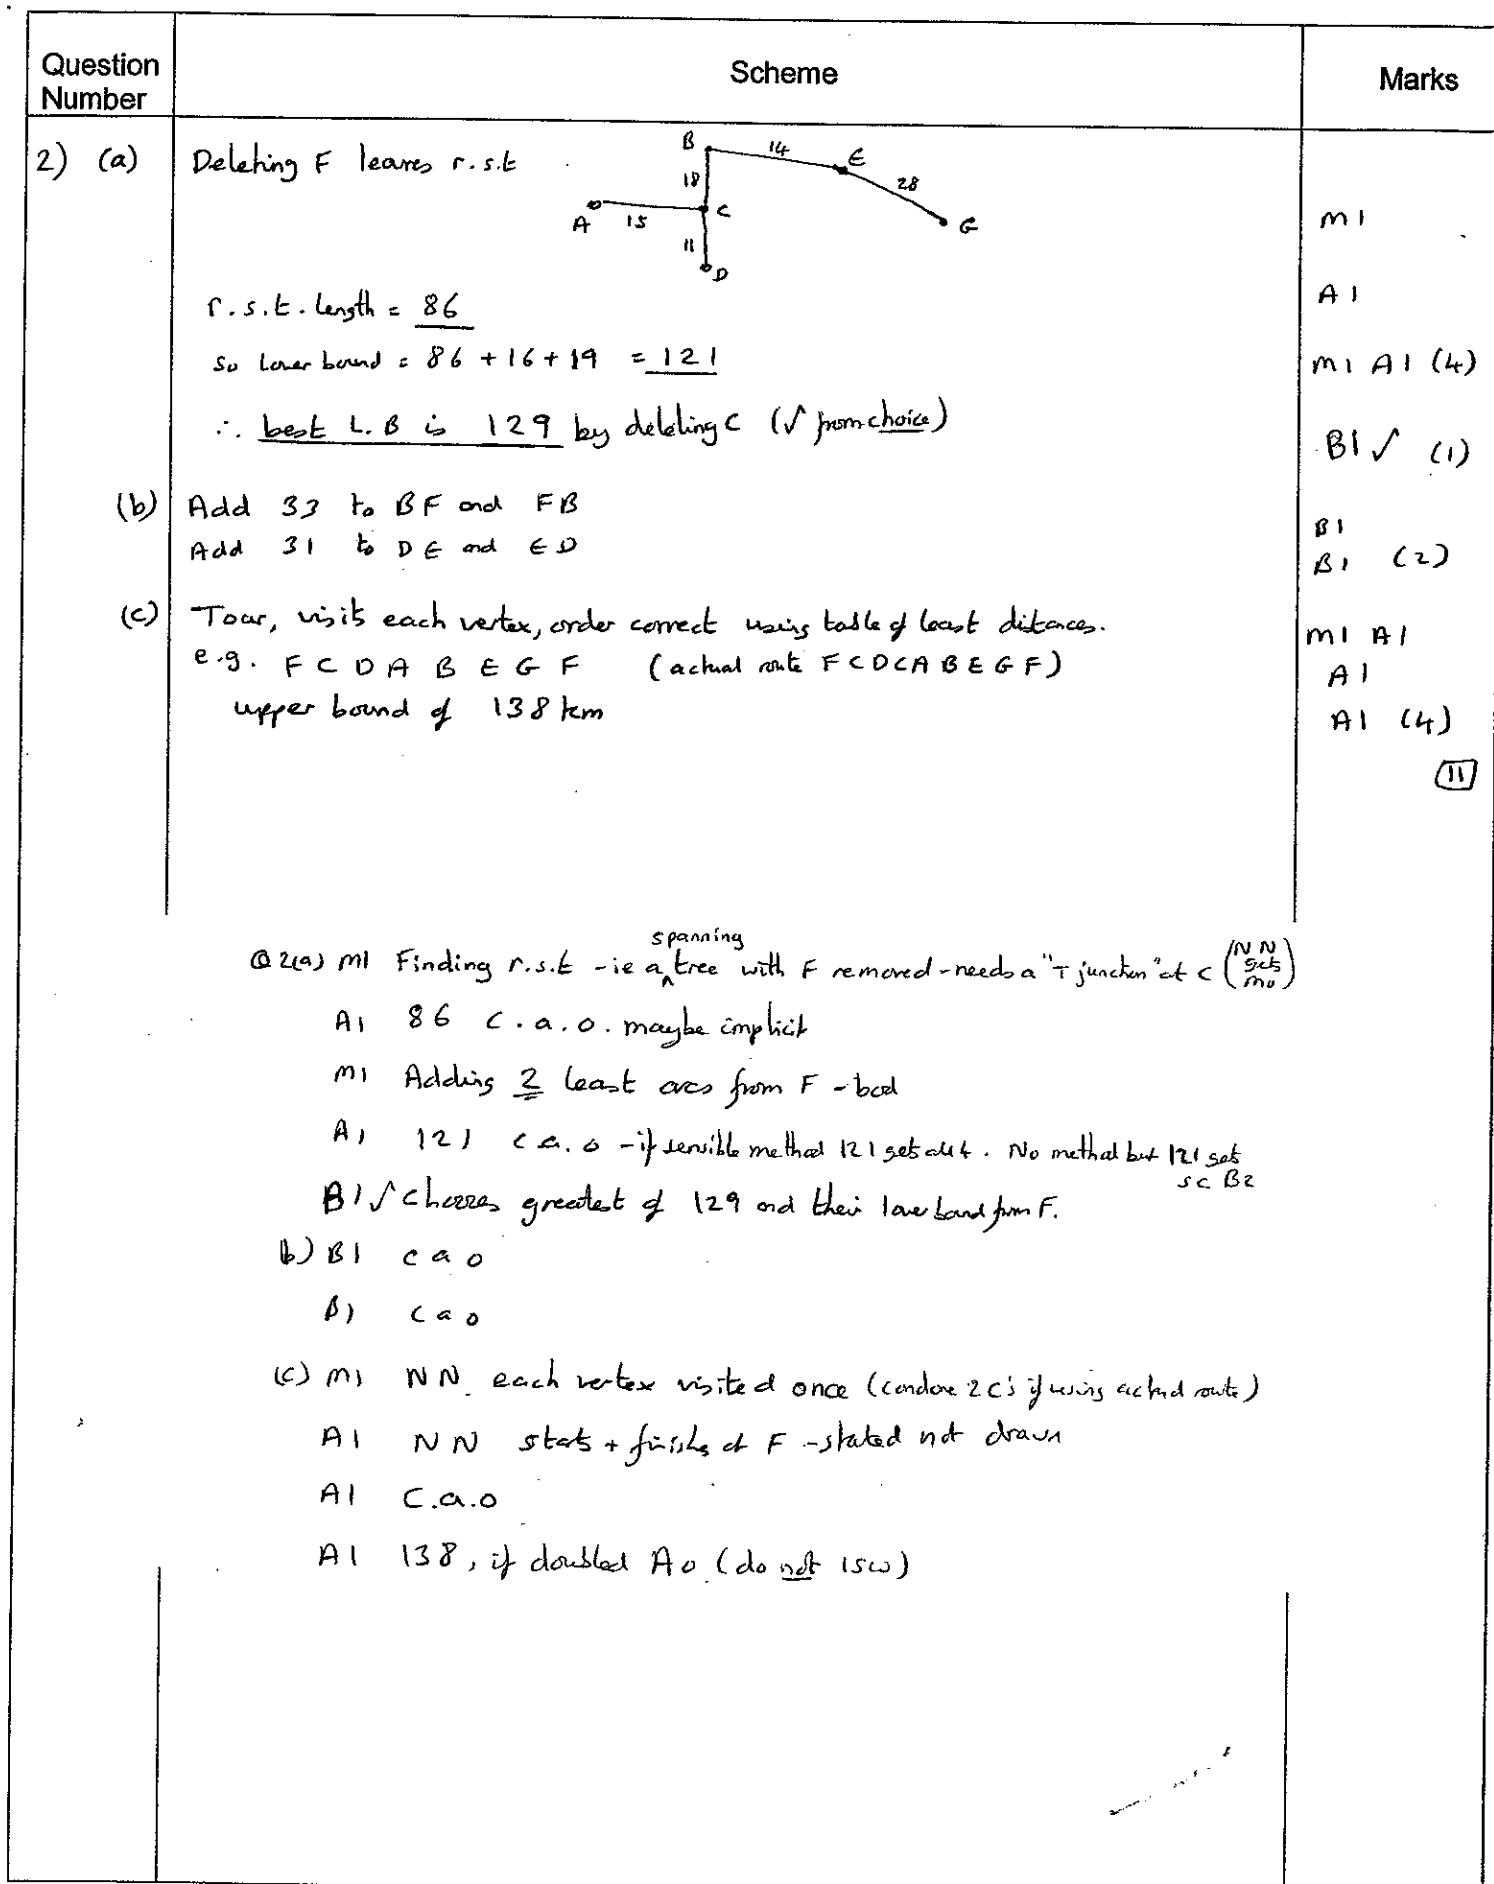 Question Number
Scheme
Marks
2) (a) Deleting F leaves r.s.t
B 14 E
18 28
A 15 C G
11
D
M1
r.s.t. length = 86 A1
So Lower bound = 86 + 16 + 19 = 121 M1 A1 (4)
∴ best L.B is 129 by deleting C (√ from choice) B1√ (1)
(b) Add 33 to BF and FB B1
Add 31 to DE and ED B1 (2)
(c) Tour, visits each vertex, order correct using table of least distances. M1 A1
e.g. F C D A B E G F (actual route F C D C A B E G F) A1
upper bound of 138 km A1 (4)
11
Q2(a) M1 Finding r.s.t - ie a spanning tree with F removed - needs a "T junction" at C (NN gets M0)
A1 86 c.a.o. maybe implicit
M1 Adding 2 least arcs from F - bod
A1 121 c.a.o - if sensible method 121 gets all 4. No method but 121 gets
SC B2
B1√ Chooses greatest of 129 and their lower bound from F.
b) B1 cao
B1 cao
(c) M1 NN each vertex visited once (condone 2 C's if using actual route)
A1 NN starts + finishes at F - stated not drawn
A1 C.a.o
A1 138, if doubled A0 (do not isw)